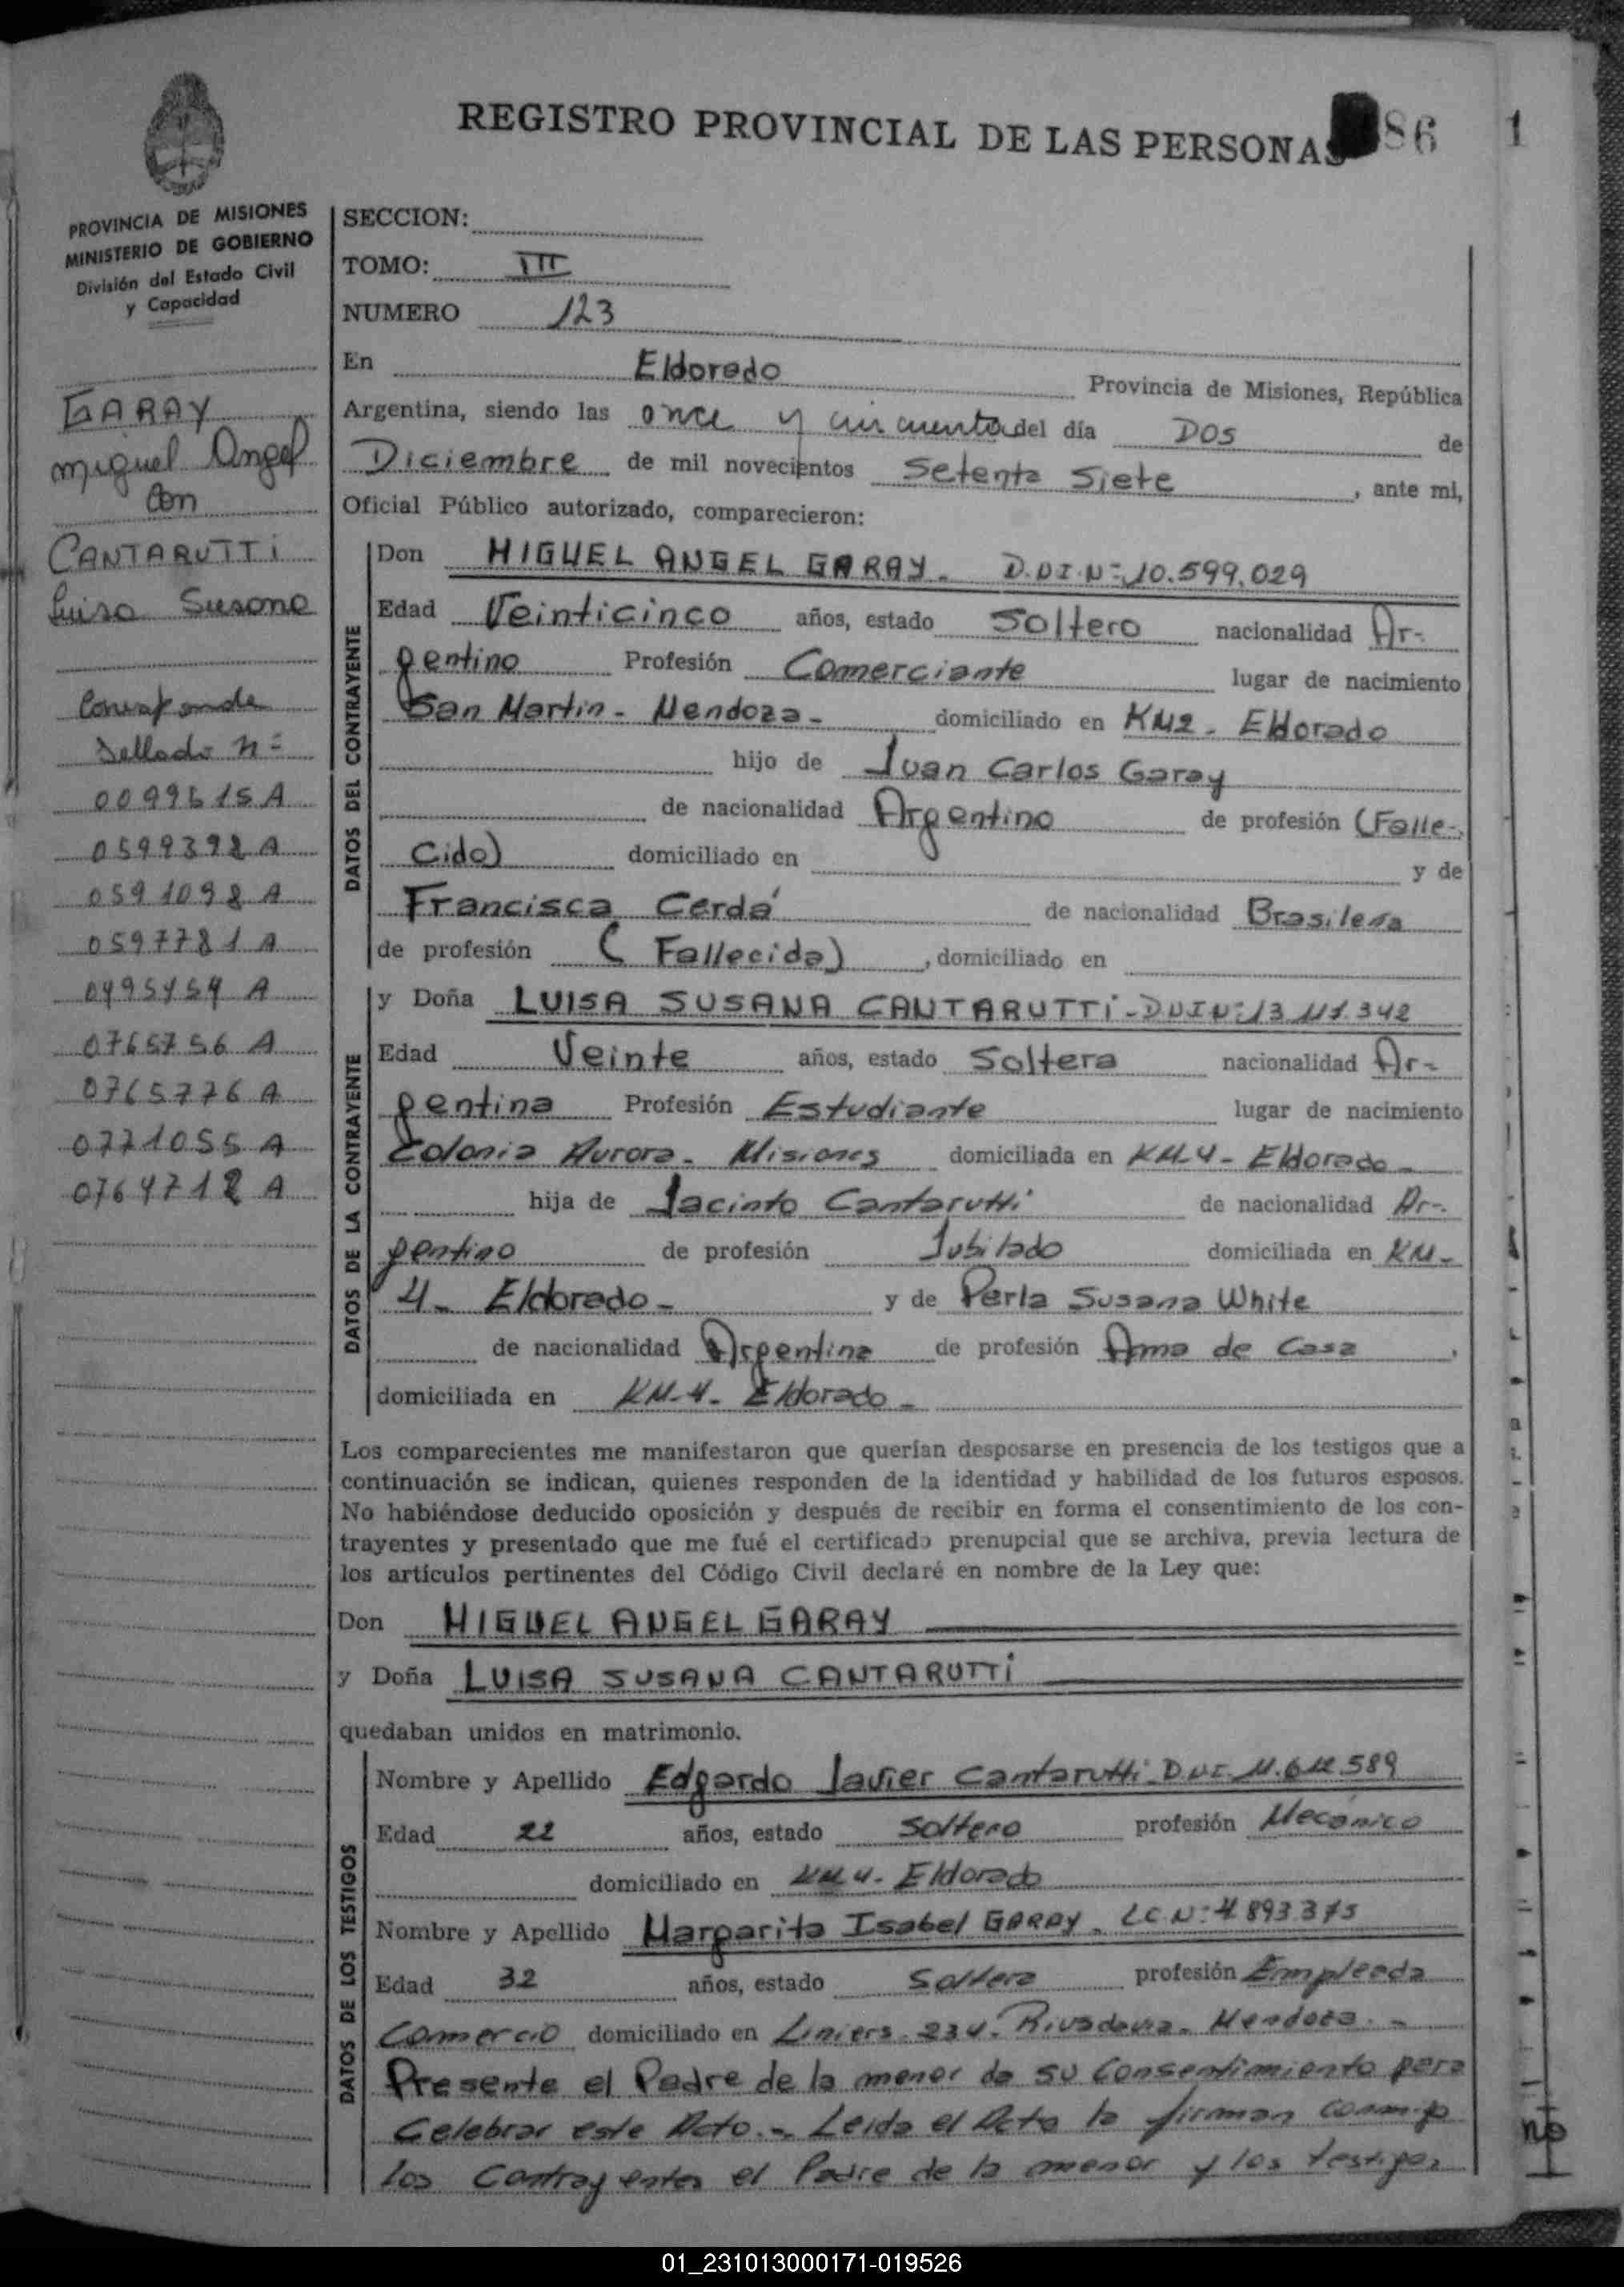 REGISTRO PROVINCIAL DE LAS PERSONAS
86
1
PROVINCIA DE MISIONES
MINISTERIO DE GOBIERNO
División del Estado Civil
y Capacidad
GARAY
Miguel Angel
con
CANTARUTTI
Luisa Susana
Corresponde
Sellado Nº
0099615 A
0599392 A
0591098 A
0597781 A
0495454 A
0765756 A
0765776 A
0771055 A
0764712 A
SECCION:
TOMO: III
NUMERO 123
En Eldorado Provincia de Misiones, República
Argentina, siendo las once y cincuenta del día DOS de
Diciembre de mil novecientos Setenta Siete, ante mi,
Oficial Público autorizado, comparecieron:
DATOS DEL CONTRAYENTE
Don MIGUEL ANGEL GARAY. D.N.I.Nº 10.599.029
Edad Veinticinco años, estado Soltero nacionalidad Ar-
gentino Profesión Comerciante lugar de nacimiento
San Martin - Mendoza - domiciliado en KM2 - Eldorado
hijo de Juan Carlos Garay
de nacionalidad Argentino de profesión (Falle-
cido) domiciliado en y de
Francisca Cerdá de nacionalidad Brasilena
de profesión (Fallecida), domiciliado en
DATOS DE LA CONTRAYENTE
y Doña LUISA SUSANA CANTARUTTI - DNI Nº 13.117.342
Edad Veinte años, estado Soltera nacionalidad Ar-
gentina Profesión Estudiante lugar de nacimiento
Colonia Aurora - Misiones domiciliada en KM.4 - Eldorado -
hija de Jacinto Cantarutti de nacionalidad Ar-
gentino de profesión Jubilado domiciliada en KM-
4 - Eldorado - y de Perla Susana White
de nacionalidad Argentina de profesión Ama de Casa,
domiciliada en KM-4 - Eldorado -
Los comparecientes me manifestaron que querían desposarse en presencia de los testigos que a
continuación se indican, quienes responden de la identidad y habilidad de los futuros esposos.
No habiéndose deducido oposición y después de recibir en forma el consentimiento de los con-
trayentes y presentado que me fué el certificado prenupcial que se archiva, previa lectura de
los artículos pertinentes del Código Civil declaré en nombre de la Ley que:
Don MIGUEL ANGEL GARAY
y Doña LUISA SUSANA CANTARUTTI
quedaban unidos en matrimonio.
DATOS DE LOS TESTIGOS
Nombre y Apellido Edgardo Javier Cantarutti - DNI. 11.612.589
Edad 22 años, estado Soltero profesión Mecánico
domiciliado en KM 4 - Eldorado
Nombre y Apellido Margarita Isabel GARAY - LC Nº 4.893.375
Edad 32 años, estado Soltera profesión Empleada
Comercio domiciliado en Liniers 234. Rivadavia - Mendoza. -
Presente el Padre de la menor da su Consentimiento para
Celebrar este Acto.- Leida el Acta la firman conmigo
los Contrayentes el Padre de la menor y los testigos
01_231013000171-019526